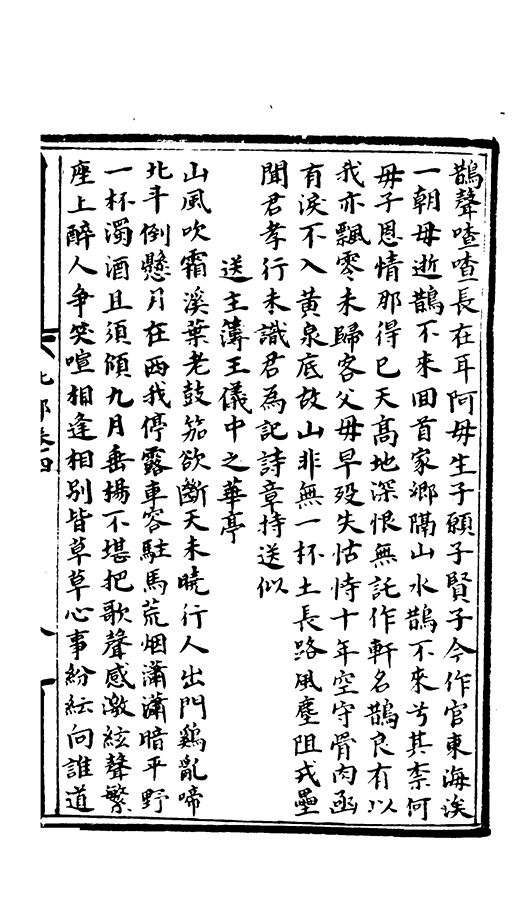 鵲聲喳喳長在耳阿母生子願子賢子今作官東海涘
一朝母逝鵲不來回首家鄉隔山水鵲不來兮其柰何
母子恩情那得已天髙地深恨無託作軒名鵲良有以
我亦飄零未歸客父母早殁失怙恃十年空守骨肉函
有淚不入黄泉底故山非無一杯土長路風塵阻戎壘
聞君孝行未識君為記詩章持送似
送主薄王儀中之華亭
山風吹霜溪葉老鼓笳欲斷天未曉行人出門鷄亂啼
北斗倒懸月在西我停露車客駐馬荒烟瀟瀟暗平野
一杯濁酒且須傾九月垂楊不堪把歌聲感激絃聲繁
座上醉人争笑喧相逢相别皆草草心事紛紜向誰道
北郭卷四